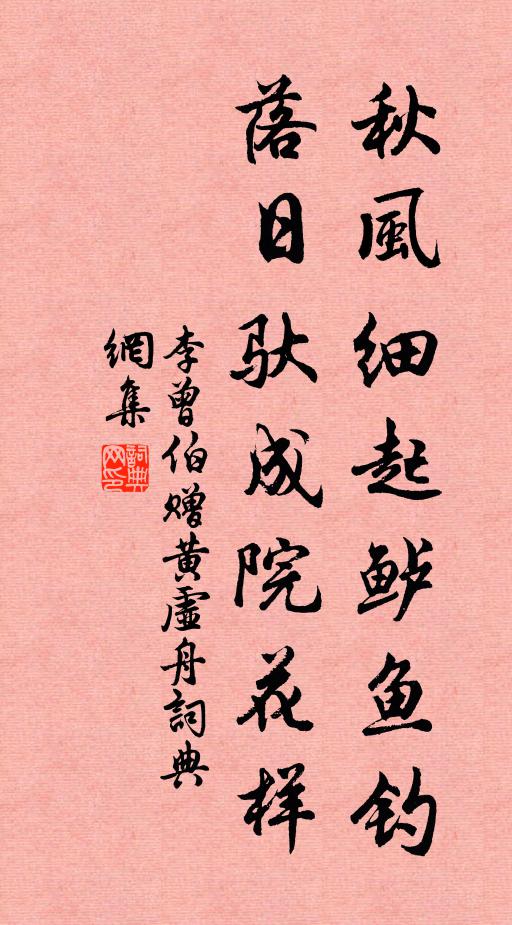 秋風细起鲈鱼钓
落日驮成院花样
李曾伯赠黄虚舟詞典
網集
詞典
网印